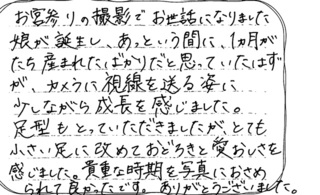 お宮参りの撮影でお世話になりました
娘が誕生し、あっという間に、1ヵ月が
たち産まれたばかりだと思っていたはず
が、カメラに視線を送る姿に
少しながら成長を感じました。
足型もとっていただきましたが、とても
小さい足に改めておどろきと愛おしさを
感じました。貴重な時期を写真におさめ
られて良かったです。ありがとうございました。